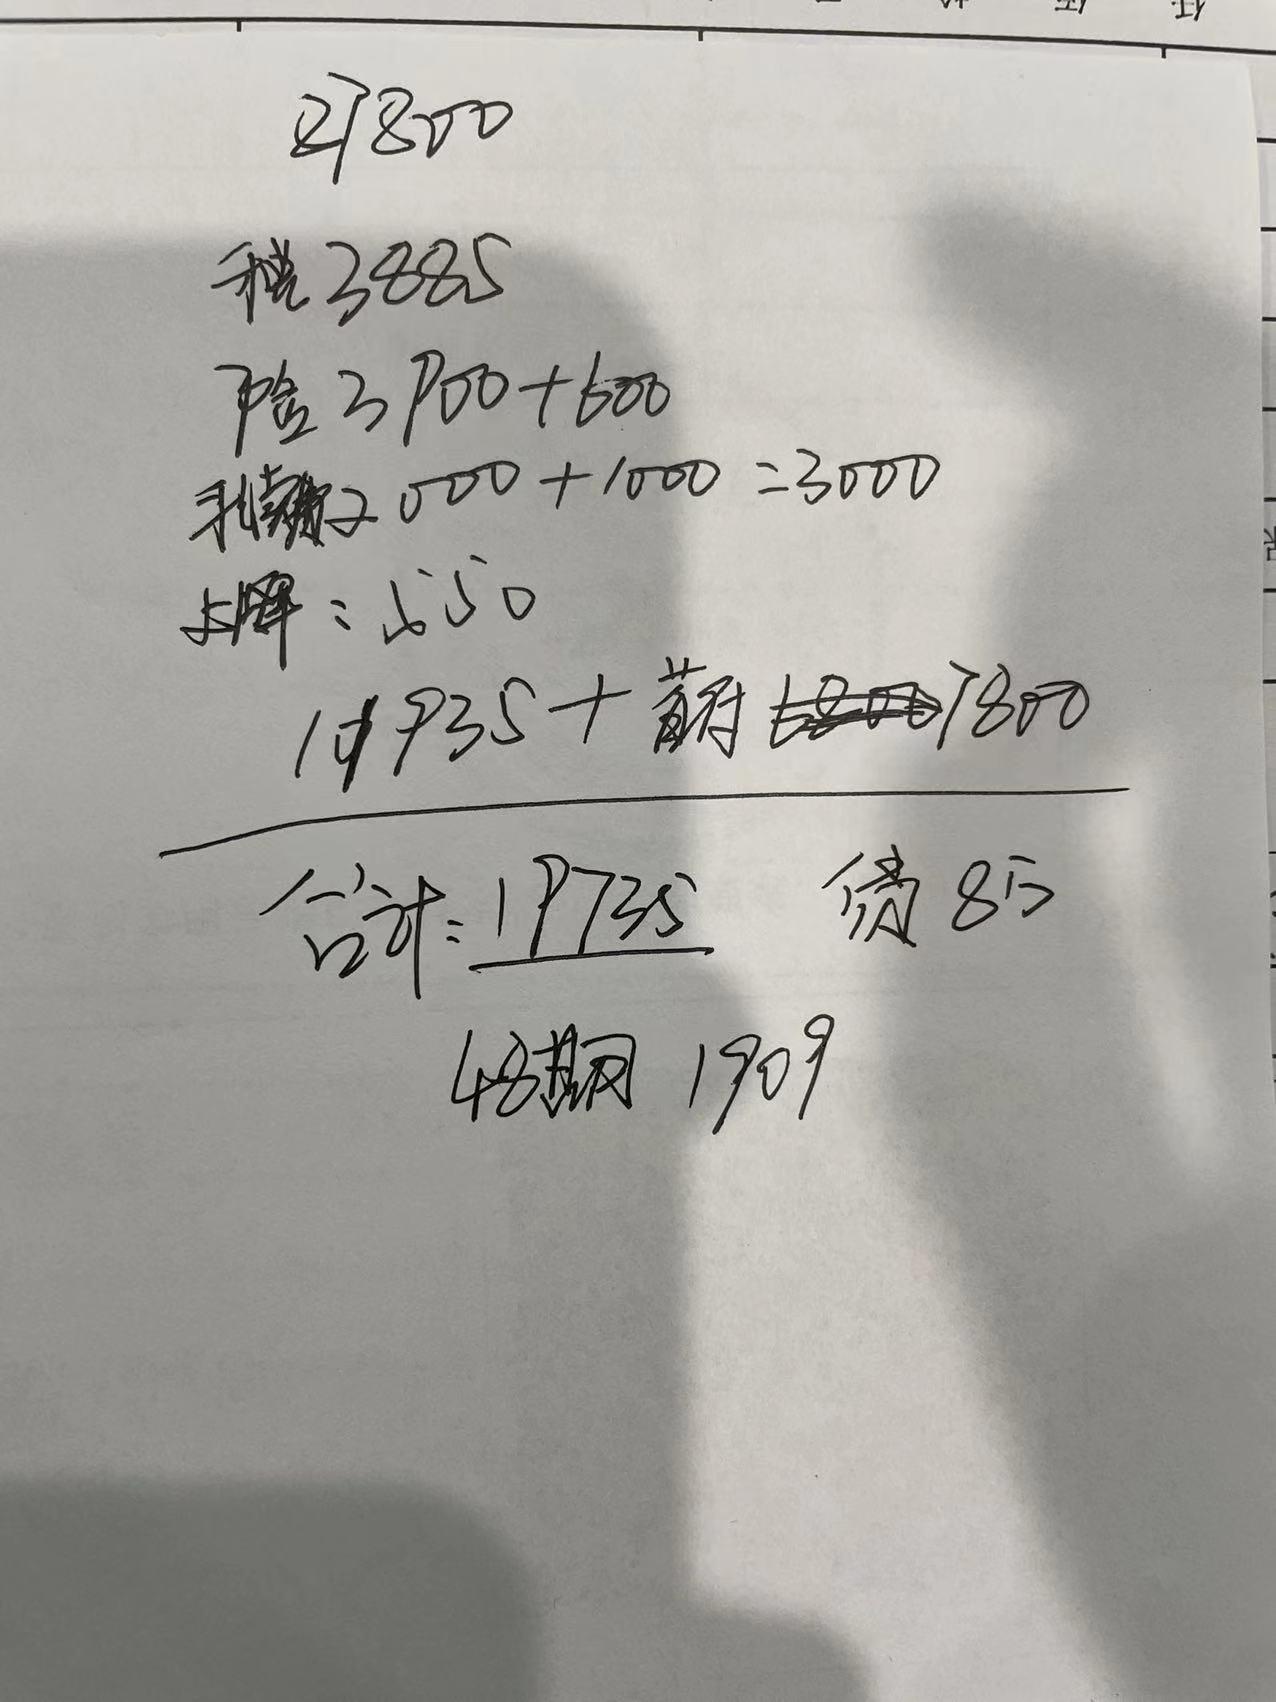 87800
税3885
险3900+600
2000+1000=3000
上牌:550
11935+首付 7800
合计:19735 贷8万
48期 1909